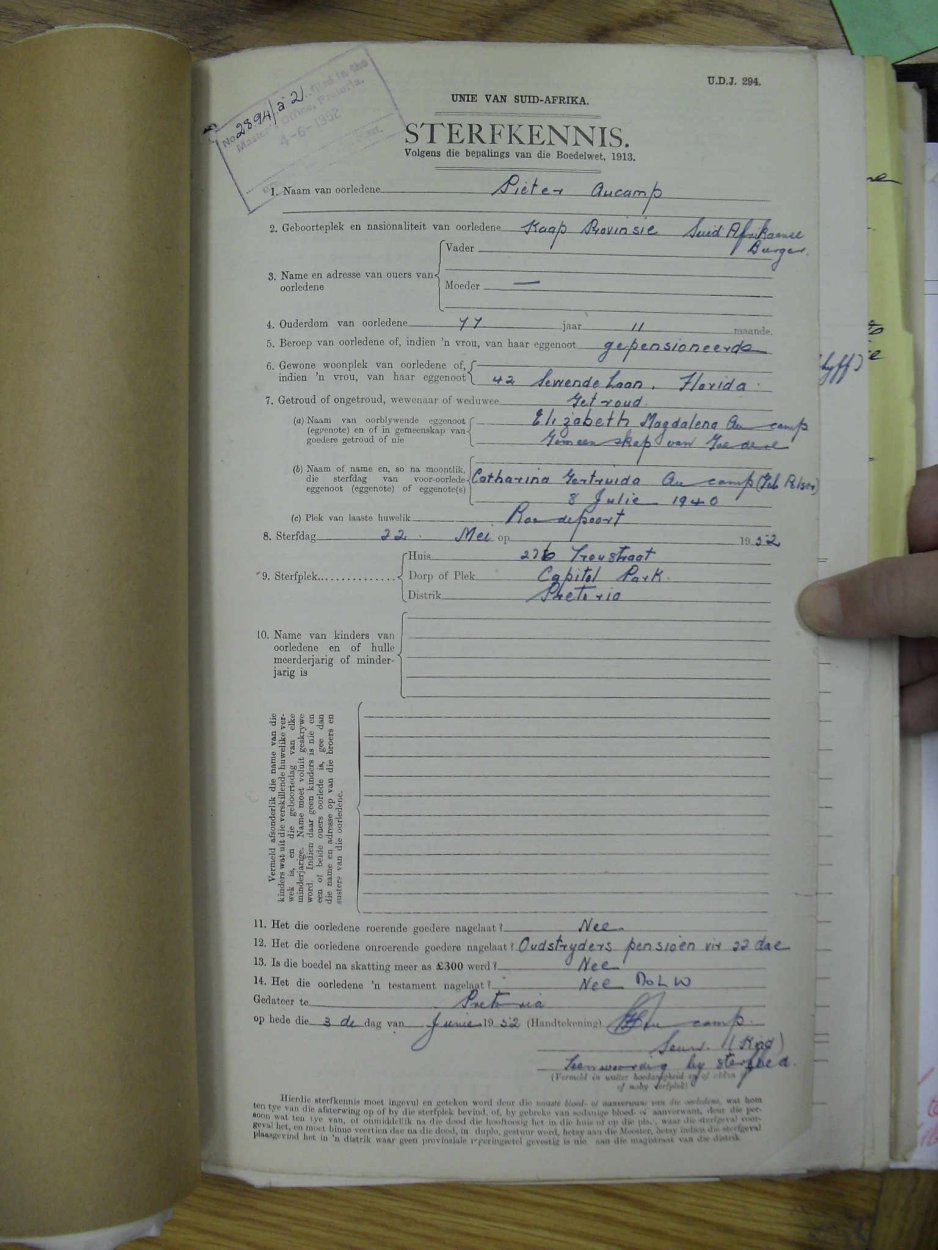 U.D.J. 294.
UNIE VAN SUID-AFRIKA.
STERFKENNIS.
Volgens die bepalings van die Boedelwet, 1913.
No. 2894/52 in the
Master's Office, Pretoria.
4-6-1952
1. Naam van oorledene Pieter Aucamp
2. Geboorteplek en nasionaliteit van oorledene Kaap Provinsie Suid Afrikaanse
Burger.
3. Name en adresse van ouers van oorledene
Vader
Moeder —
4. Ouderdom van oorledene 77 jaar 11 maande.
5. Beroep van oorledene of, indien 'n vrou, van haar eggenoot gepensioeneerde
6. Gewone woonplek van oorledene of,
indien 'n vrou, van haar eggenoot 42 Sewende Laan. Florida.
7. Getroud of ongetroud, wewenaar of weduwee Getroud.
(a) Naam van oorblywende eggenoot Elizabeth Magdalena Aucamp
(eggenote) en of in gemeenskap van
goedere getroud of nie Gemeenskap van Goedere
(b) Naam of name en, so na moontlik,
die sterfdag van voor-oorlede Catharina Gertruida Aucamp (Geb Pelser)
eggenoot (eggenote) of eggenote(s) 8 Julie 1940
(c) Plek van laaste huwelik Roodepoort
8. Sterfdag 22. Mei op 1952
9. Sterfplek
Huis 276 Troustraat
Dorp of Plek Capitol Park.
Distrik Pretoria
10. Name van kinders van
oorledene en of hulle
meerderjarig of minder-
jarig is
Vermeld afsonderlik die name van die
kinders wat uit die verskillende huwelike ver-
wek is, en die geboortedag van elke
minderjarige. Name moet voluit geskrywe
word. Indien daar geen kinders is nie en
een of beide ouers oorlede is, gee dan
die name en adresse op van die broers en
susters van die oorledene.
11. Het die oorledene roerende goedere nagelaat? Nee.
12. Het die oorledene onroerende goedere nagelaat? Oudstryders pensioen vir 22 dae
13. Is die boedel na skatting meer as £300 werd? Nee
14. Het die oorledene 'n testament nagelaat? Nee
Gedateer te Pretoria
op hede die 3 de dag van Junie 1952 (Handtekening) Aucamp.
Seun. (Kind)
Teenwoordig by sterfbed.
(Vermeld in watter hoedanigheid en of elders
of naby sterfplek)
Hierdie sterfkennis moet ingevul en geteken word deur die naaste bloed- of aanverwant van die oorledene, wat hom
ten tye van die afsterwing op of by die sterfplek bevind, of, by gebreke van sodanige bloed- of aanverwant, deur die per-
soon wat ten tye van, of onmiddellik na die dood die hoofbesorg het in die huis of op die plaas, waar die sterfgeval voor-
geval het, en moet binne veertien dae na die dood, in duplo, gestuur word, hetsy aan die Meester, hetsy indien die sterfgeval
plaasgevind het in 'n distrik waar geen provinsiale regeringsetel gevestig is nie aan die magistraat van die distrik